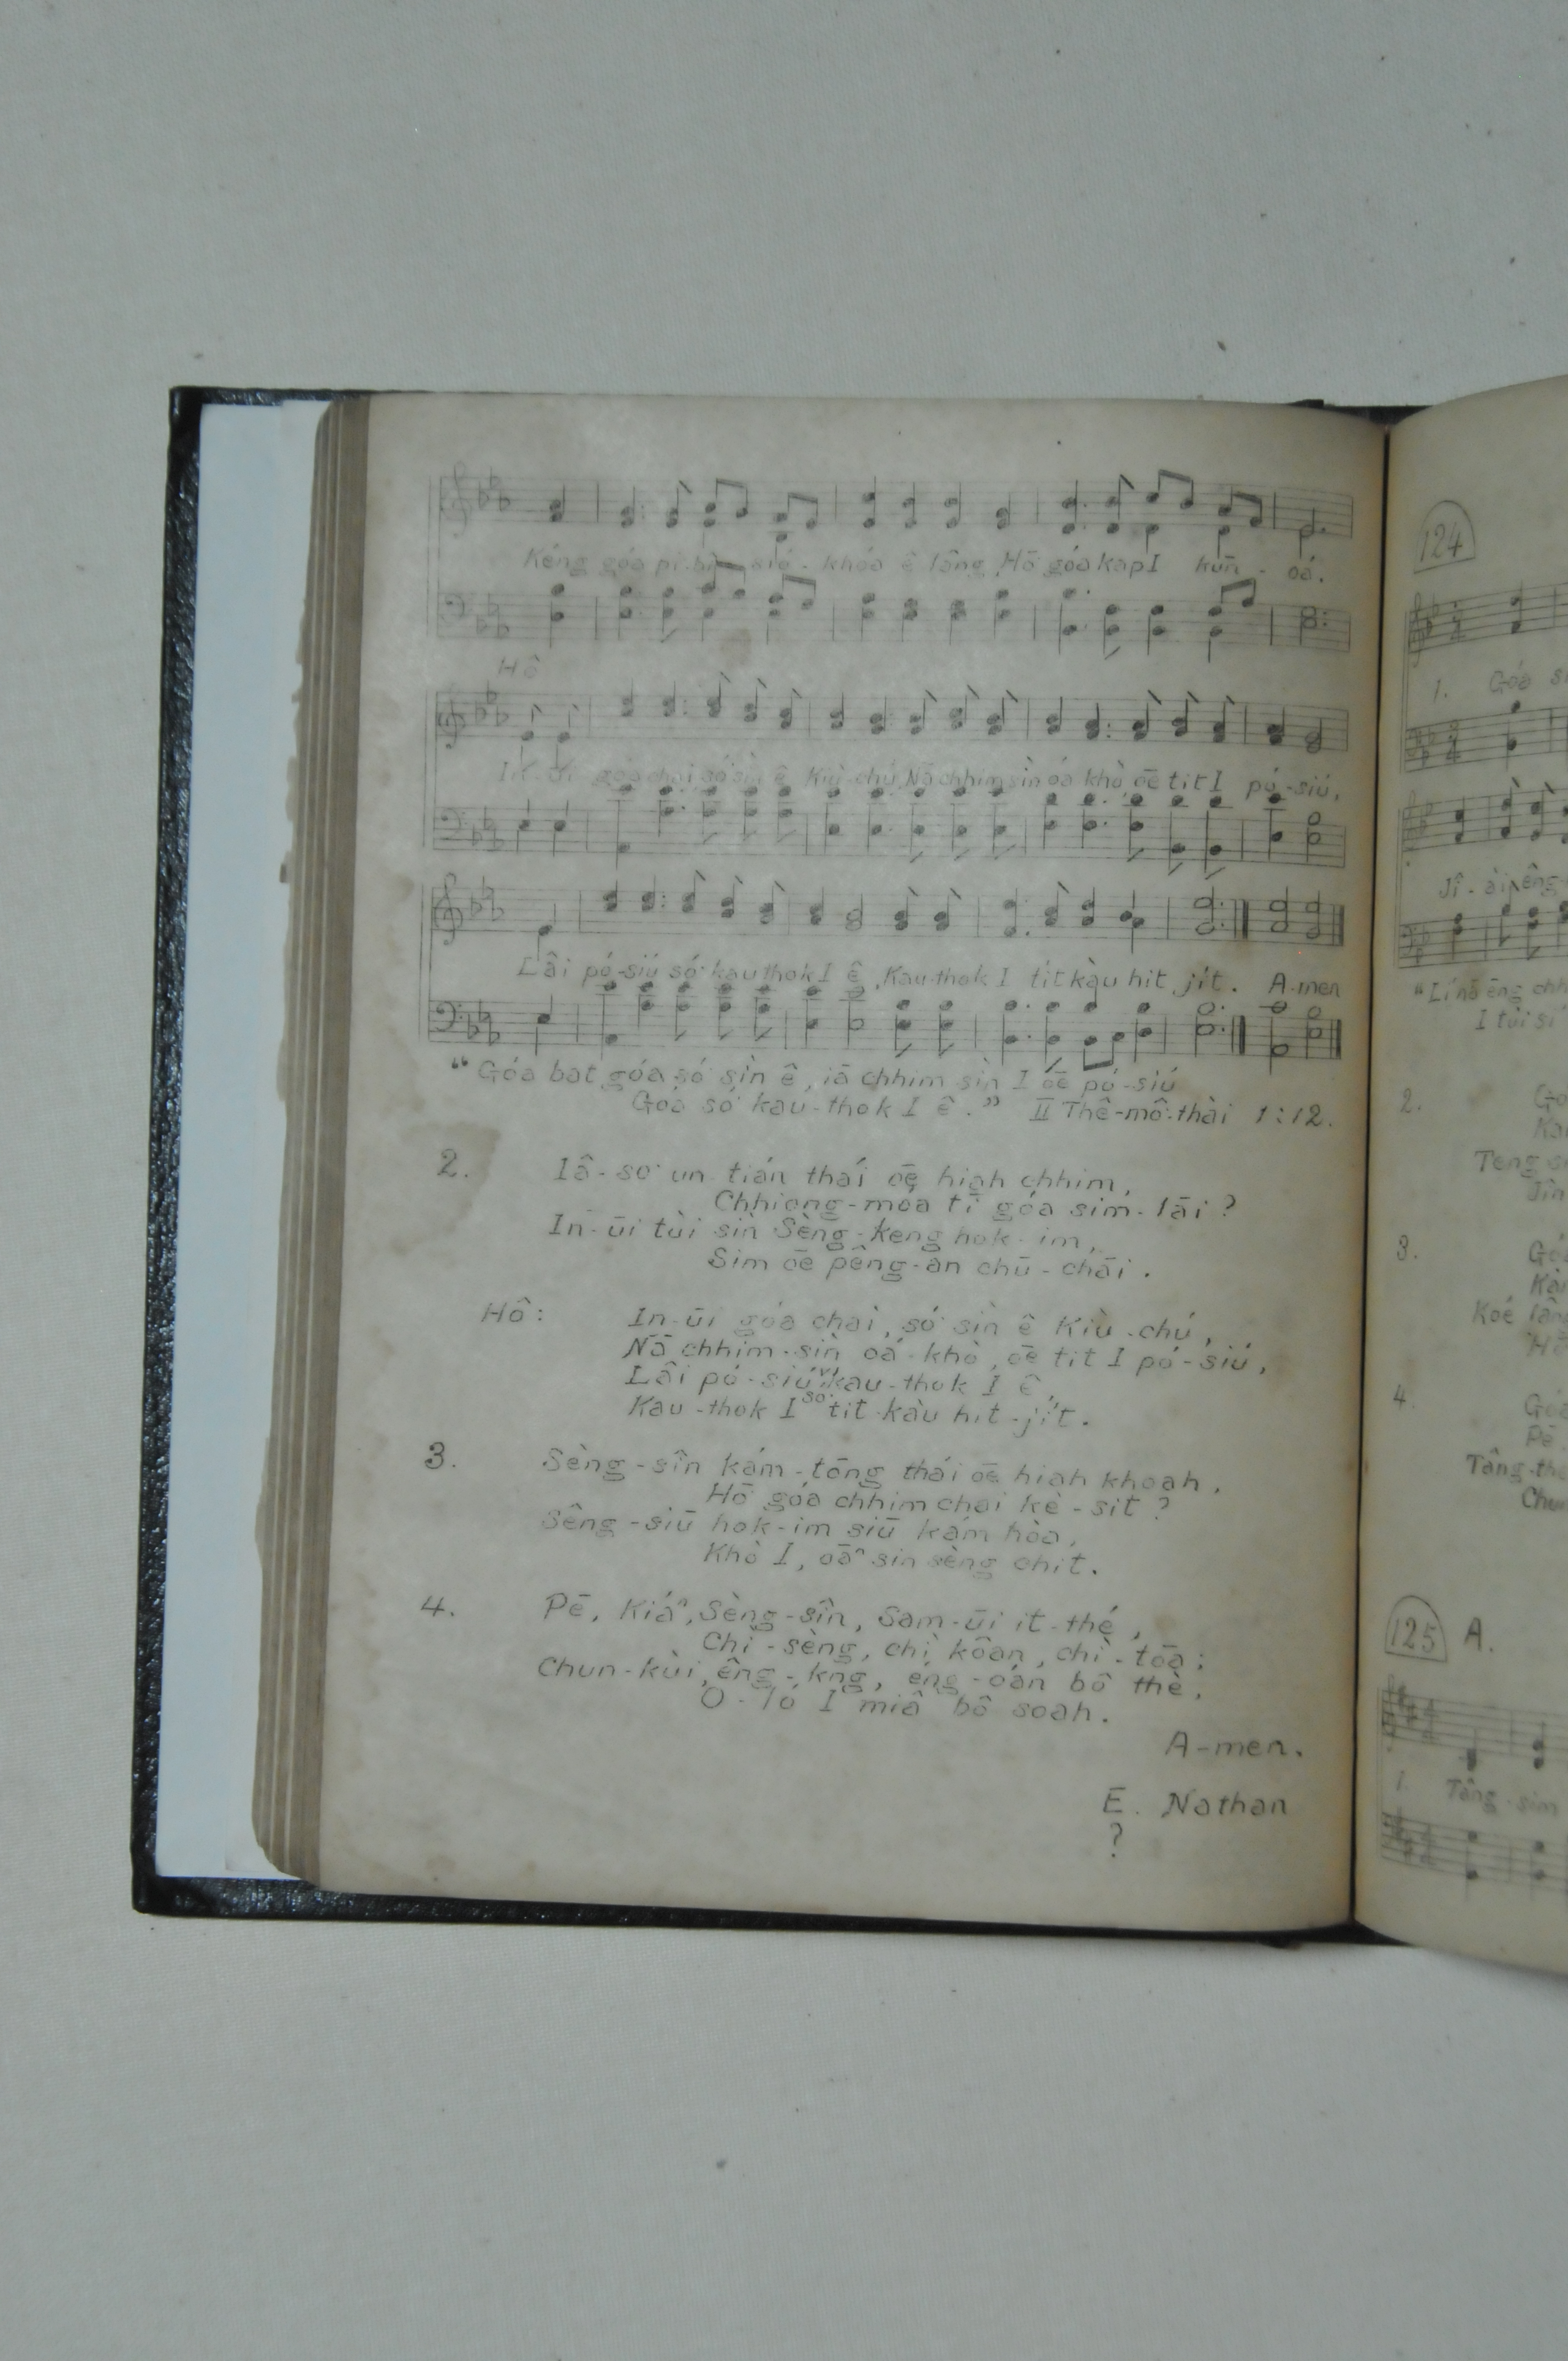 Kéng góa pí-bî sió-khóa ê lâng, Hō góa kap I kūn-oá.
Hô
In-ūi góa chai, só͘ sìn ê Kiù-chú, Nā chhim sìn óa khò, ōe tit I pó-siú,
Lâi pó-siú só͘ kau-thok I ê, Kau-thok I tit kàu hit jit. A-men
“Góa bat góa só͘ sìn ê, iā chhim sìn I ōe pó-siú
Góa só͘ kau-thok I ê.” II Thê-mô͘-thài 1:12.
2. Iâ-so͘ un-tián thái ōe hiah chhim,
Chhiong-móa tī góa sim-lāi?
In-ūi tùi sìn Sèng-keng hok-im,
Sim ōe pêng-an chū-chāi.
Hô: In-ūi góa chai, só͘ sìn ê Kiù-chú,
Nā chhim-sìn oá-khò, ōe tit I pó-siú,
Lâi pó-siú só͘ kau-thok I ê,
Kau-thok I tit-kàu hit-jit.
3. Sèng-sîn kám-tōng thái ōe hiah khoah,
Hō͘ góa chhim chai kè-sit?
Sêng-siū hok-im siū kám hòa,
Khò I, oāⁿ sin sèng chit.
4. Pē, Kiáⁿ, Sèng-sîn, Sam-ūi it-thé,
Chì-sèng, chì kôan, chì-tōa;
Chun-kùi, êng-kng, éng-oán bô thè,
O-ló I miâ bô soah.
A-men.
E. Nathan
?
124
1. Góa
Jî-ài, êng-
“Lí nā ēng
I tùi
2.
Teng
3.
Koé lâng
4.
Pē
Tâng-
125 A.
1. Tâng-sim